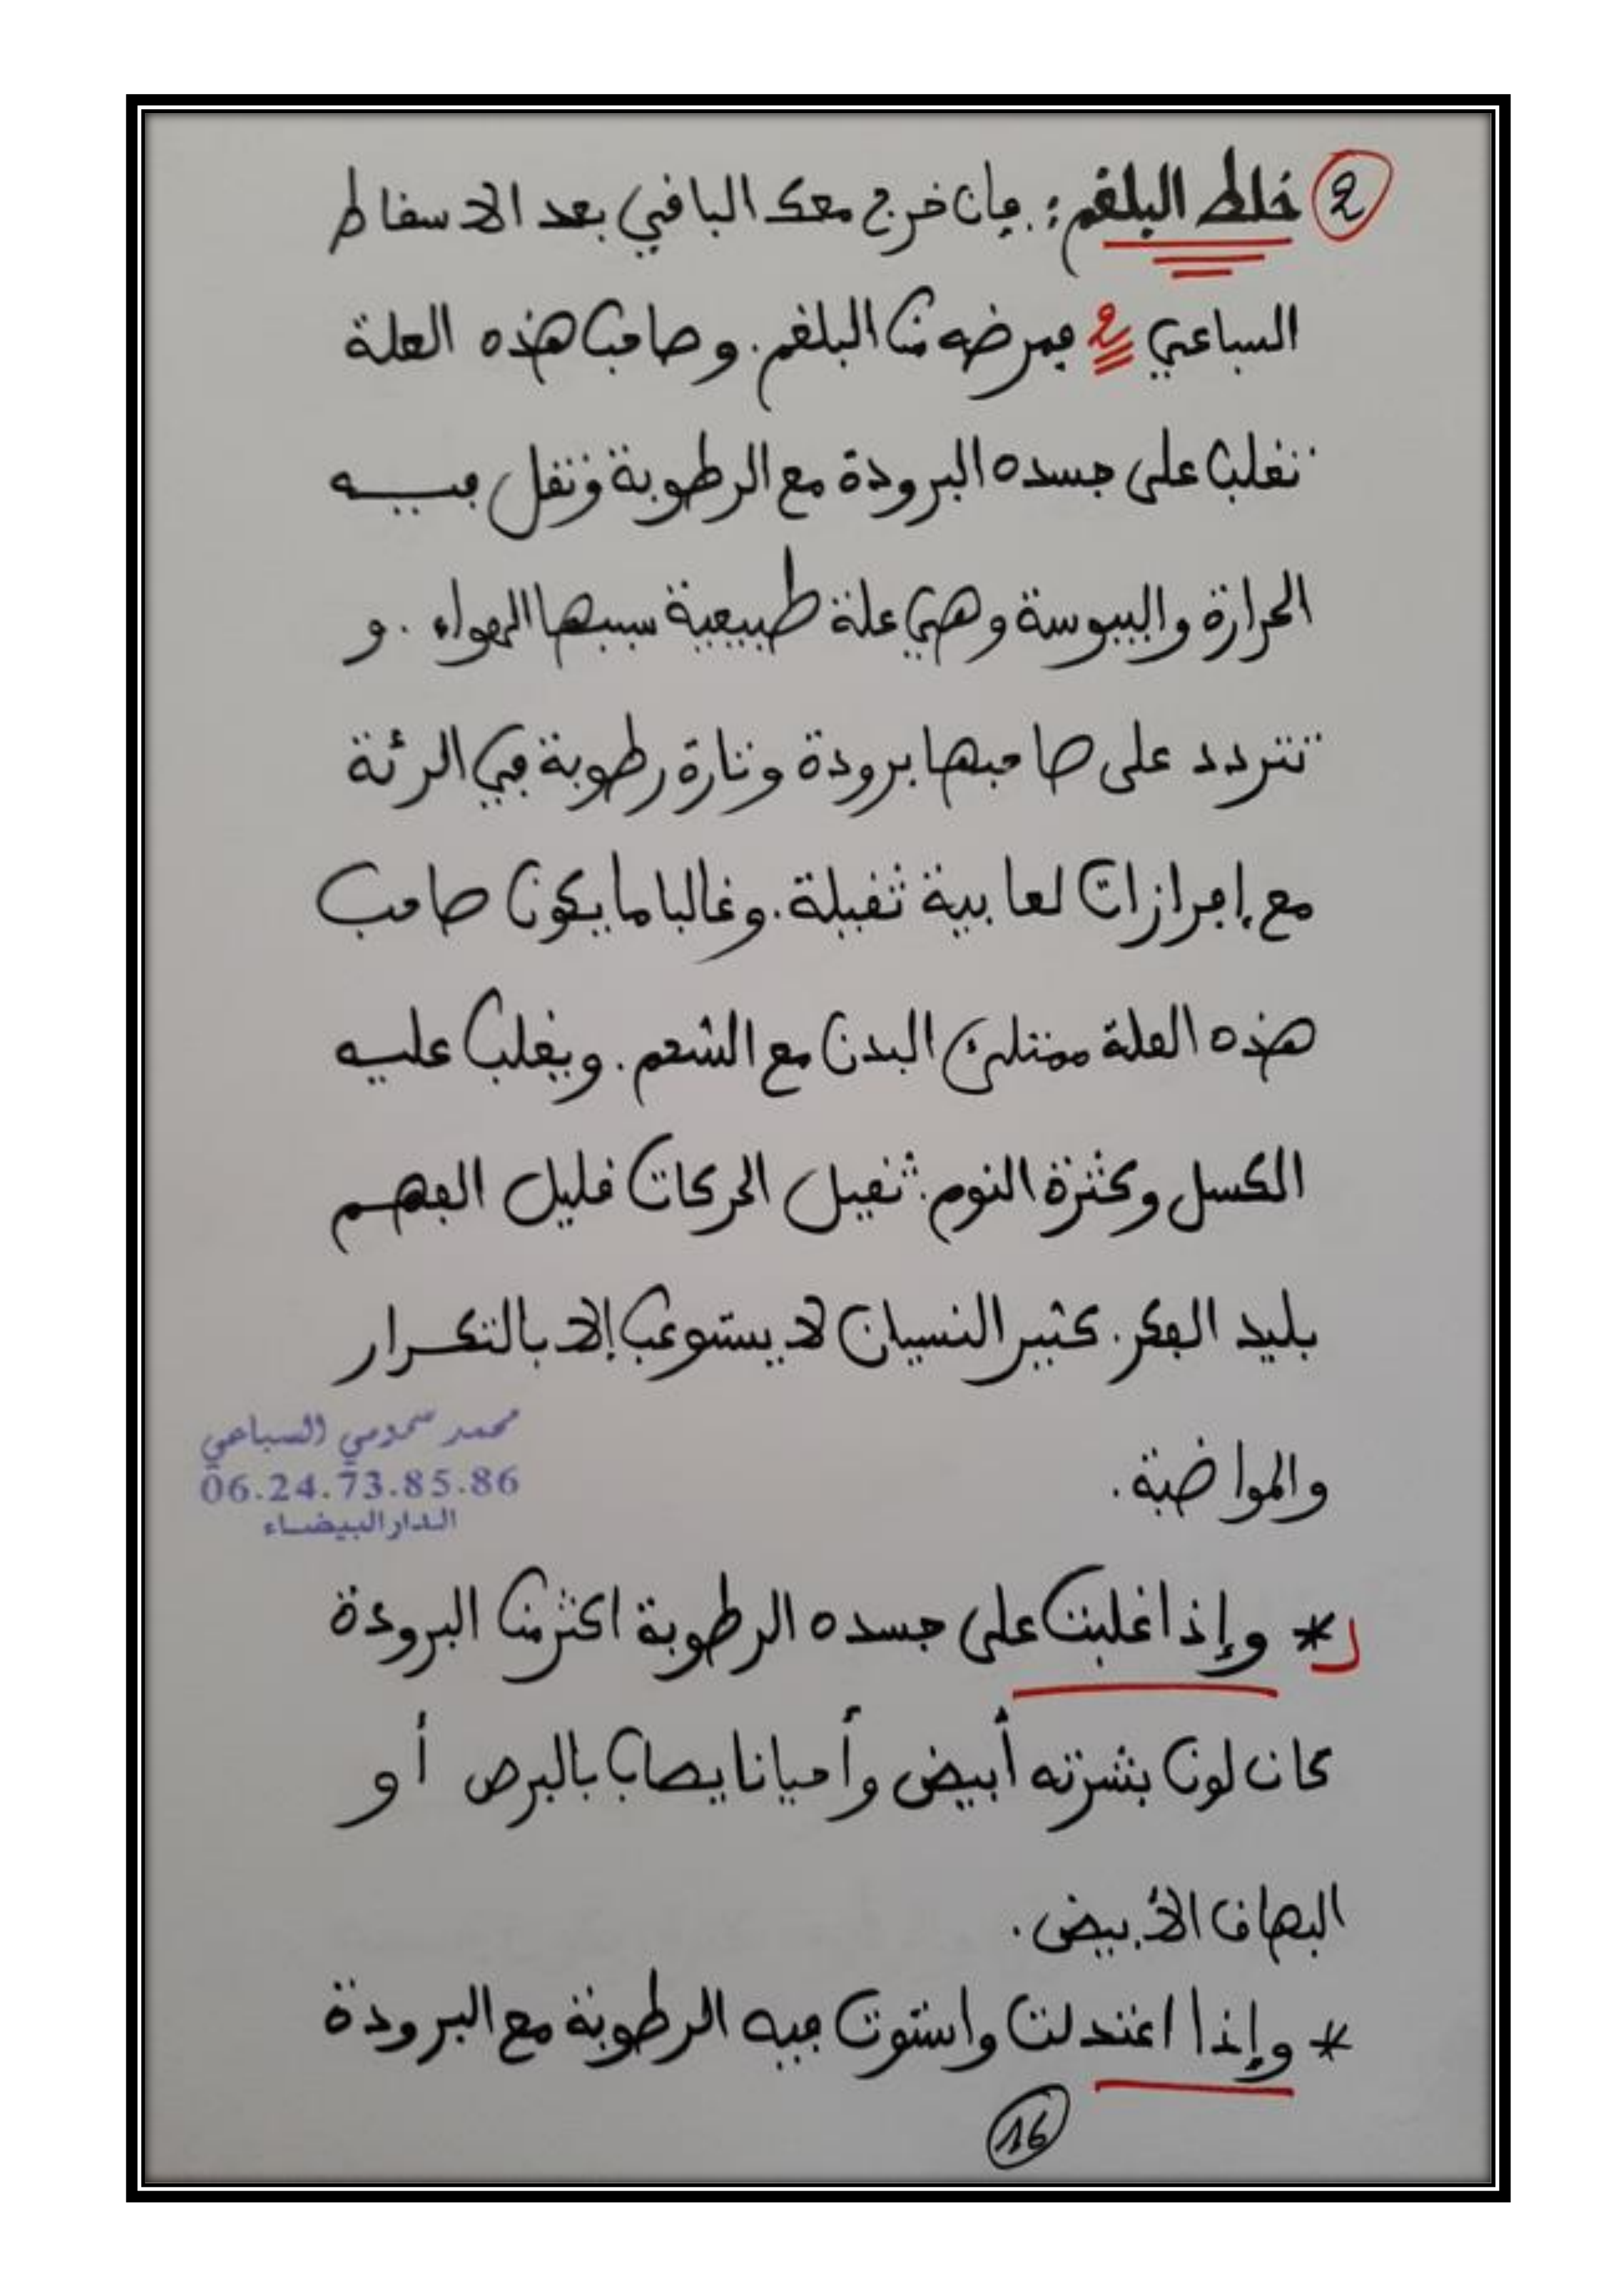 2 خلط البلغم: فإن خرج معك الباقي بعد الاسقاط
السباعي 2 فمرضه من البلغم. وصاحب هذه العلة
تغلب على جسده البرودة مع الرطوبة وتقل فيه
الحرارة واليبوسة وهي علة طبيعية سببها الهواء. و
تتردد على صاحبها برودة وتارة رطوبة في الرئة
مع إفرازات لعابية ثقيلة. وغالبا ما يكون صاحب
هذه العلة ممتلئ البدن مع الشحم. ويغلب عليه
الكسل وكثرة النوم. ثقيل الحركات قليل الفهم
بليد الفكر. كثير النسيان لا يستوعب إلا بالتكرار
والمواضبة.
محمد السباعي
06.24.73.85.86
الدار البيضاء
* وإذا غلبت على جسده الرطوبة اكثر من البرودة
كان لون بشرته أبيض وأحيانا يصاب بالبرص أو
البهاق الأبيض.
* وإذا اعتدلت واستوت فيه الرطوبة مع البرودة
16